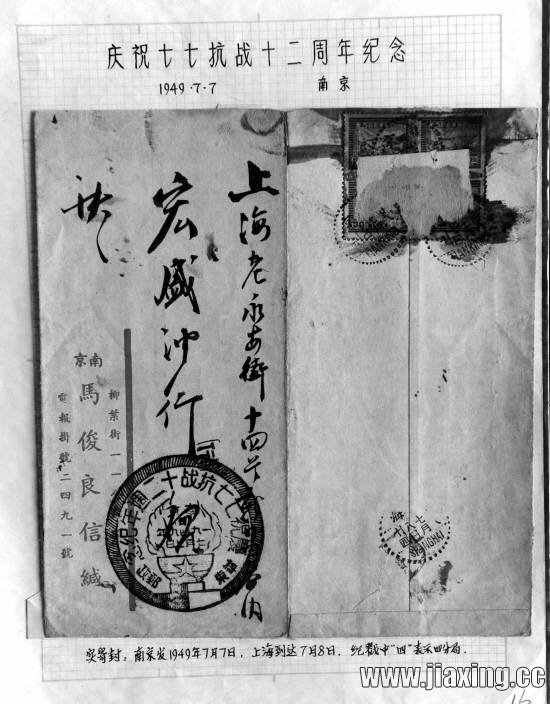 庆祝七七抗战十二周年纪念
1949·7·7 南京
上海老永安街十四号
宏盛沙行
南京
馬俊良信缄
柳葉街一一
電報掛號二四九一號
慶祝七七抗战十二周年纪念
SHANGHAI
实寄封。南京发1949年7月7日，上海到达7月8日。纪戳中“四”表示四分局。
www.jiaxing.cc
16